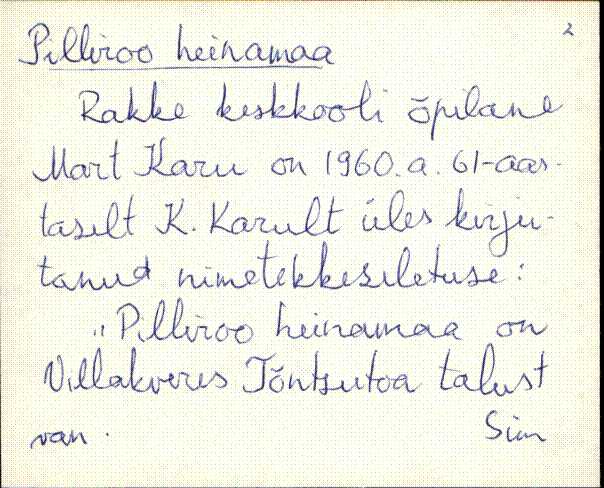 2
Pilliroo heinamaa
Rakke keskkooli õpilane
Mart Karu on 1960. a. 61-aas-
taselt K. Karult üles kirju-
tanud nimetekkeseletuse:
„Pilliroo heinamaa on
Villakveres Tõntsutoa talust
van. Siin